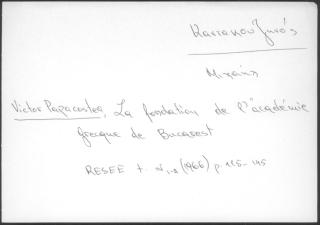 Μιχαήλ
Victor Papacostea, La fondation de l'académie
grecque de Bucarest
RESEE t. (1966) p. 115-145